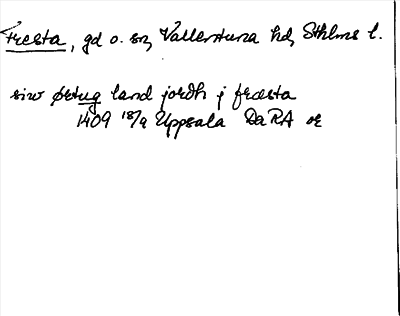 Fresta, gd o. sn, Vallentuna hd, Sthlms l.
siw ørtug land jordh j fræsta
1409 18/9 Uppsala DaRA or